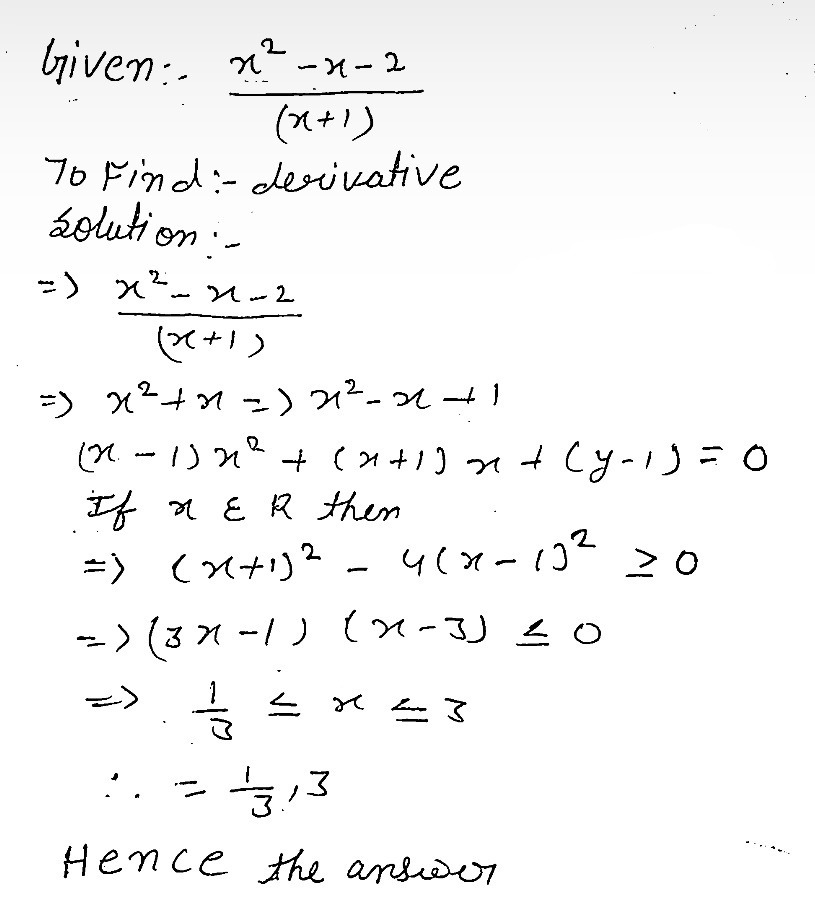 Given:- x² - x - 2
(x+1)
To Find:- derivative
Solution:-
=> x² - x - 2
(x+1)
=> x² + x => x² - x + 1
(x - 1) x² + (x+1) x + (y-1) = 0
If x ε R then
=> (x+1)² - 4(x-1)² ≥ 0
=> (3x-1) (x-3) ≤ 0
=> 1/3 ≤ x ≤ 3
∴ = 1/3, 3
Hence the answer